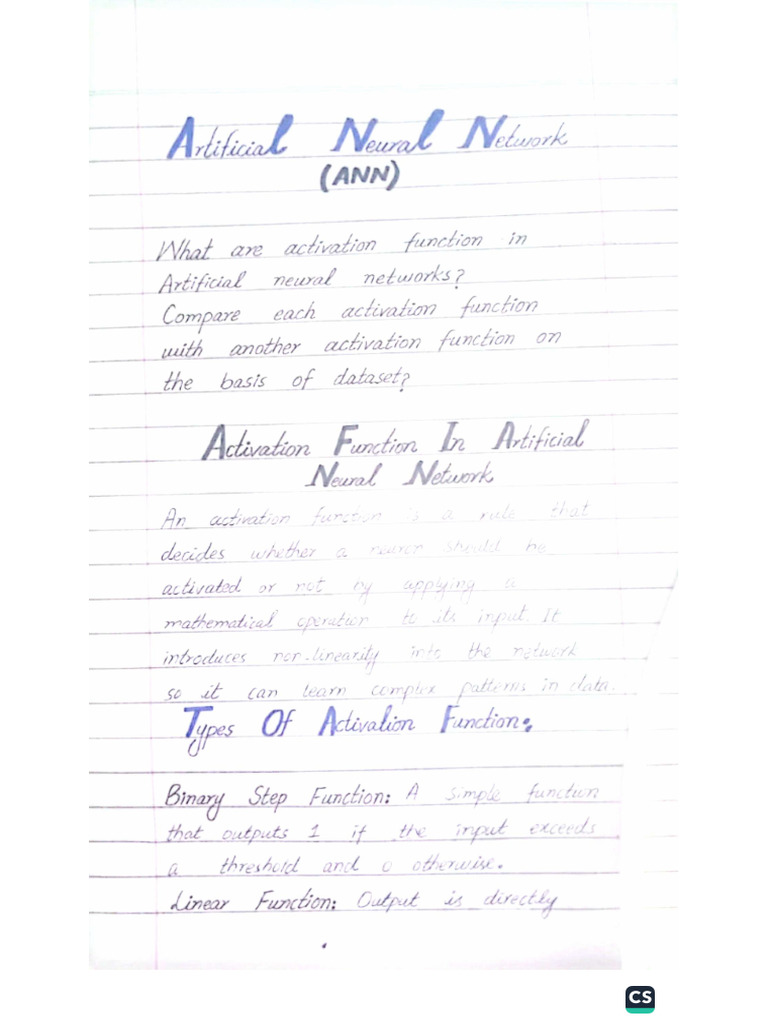 Artificial Neural Network
(ANN)
What are activation function in
Artificial neural networks?
Compare each activation function
with another activation function on
the basis of dataset?
Activation Function In Artificial
Neural Network
An activation function is a rule that
decides whether a neuron should be
activated or not by applying a
mathematical operation to its input. It
introduces non-linearity into the network
so it can learn complex patterns in data.
Types Of Activation Function:
Binary Step Function: A simple function
that outputs 1 if the input exceeds
a threshold and 0 otherwise.
Linear Function: Output is directly
CS